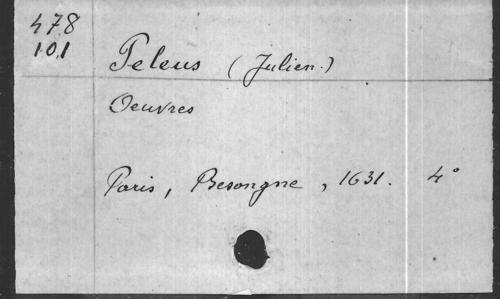 478
101
Peleus (Julien.)
Oeuvres
Paris, Besongne, 1631. 4°